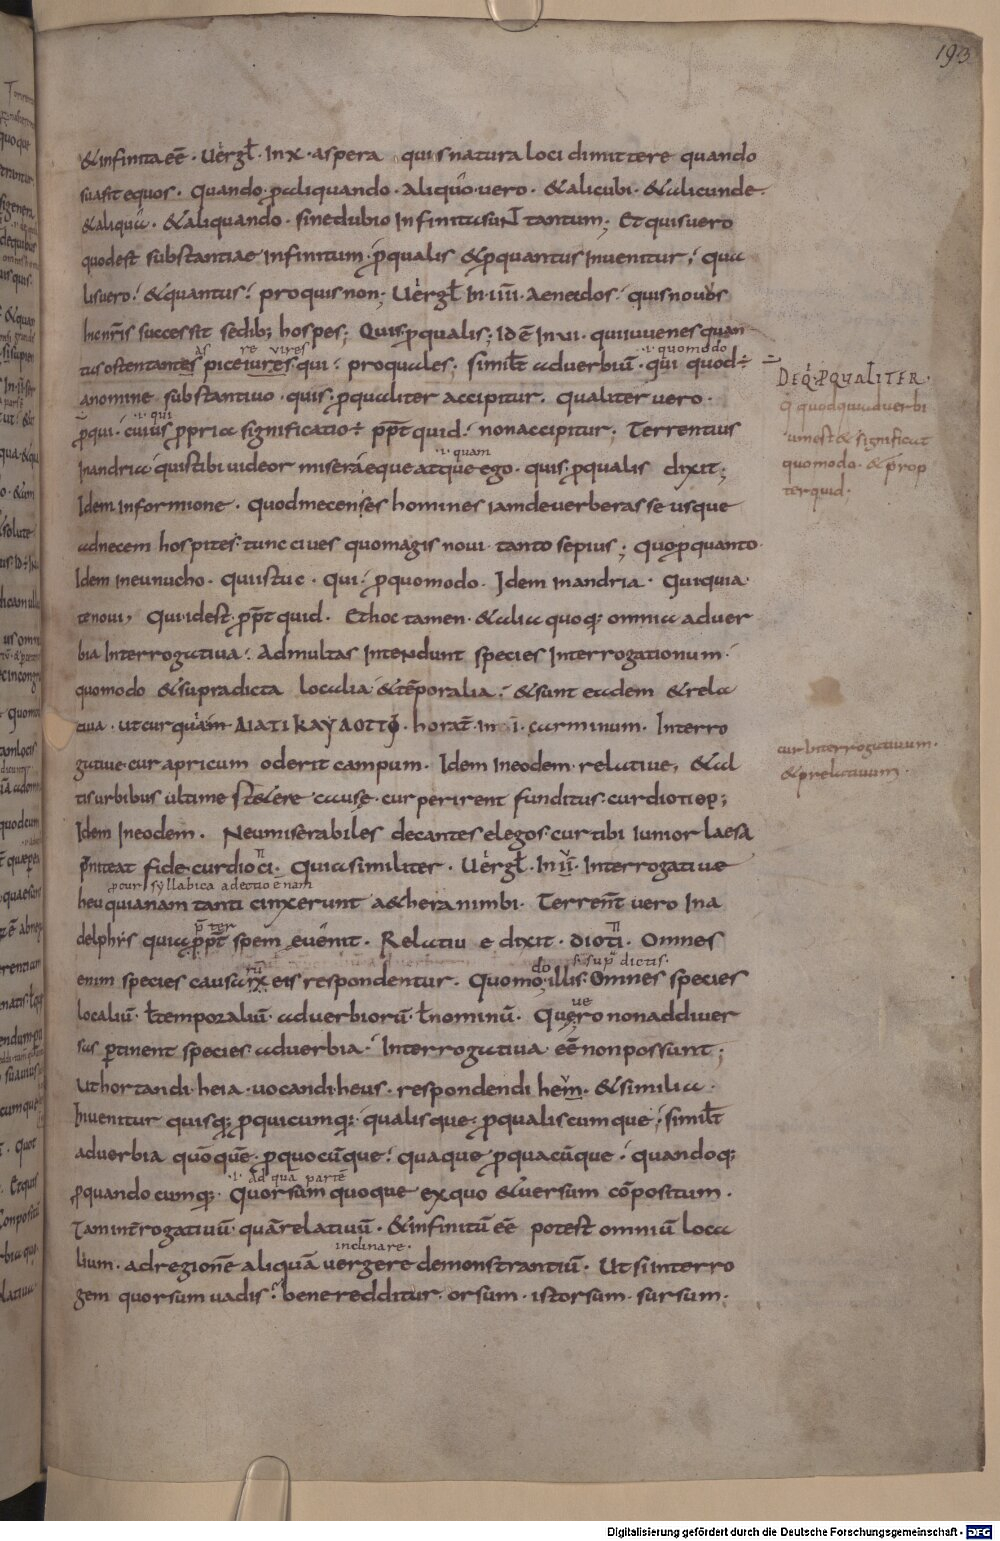 193
& infinita eē · Uergł · In x · aspera quis natura loci dimittere quando
suasit equos · Quando · p aliquando · Aliquo uero · & alicubi · & alicunde ·
& aliqua · & aliquando · sine dubio Infinita suNT tantum ; Et quis uero
quod est substantiae Infinitum · p qualis & p quantus Inuenitur ; qua
lis uero · & quantus · pro quis non ; Uergł In · iiii · Aeneados · quis nouus
hic nr̄is successit sedib; hospes ; Quis p qualis ; Id ē In · ui · qui iuuenes quan
as re vires ·i· quomodo
tas ostentant uires · qui · pro quales · similit aduerbiū · qui quod ÷
DE Q̇ · P QUALITER ·
a nomine substantiuo · quis · p qualiter accipitur · Qualiter uero ·
q̄ quodqua aduerbi
·i· qui
p qui · cuius ppria significatio ÷ ppt quid · non accipitur ; Terrentius
um est & significat
·i· quam
In andria quis tibi uideor miser aeque atque ego · quis · p qualis dixit ;
quomodo · & prop
ter quid ·
Idem In formione · Quod me censes homines iam deuerberasse usque
ad necem hospites · tunc ciues quo magis noui · tanto sepius ; Quo p quanto ·
Idem In eunucho · Qui istuc · qui · p quomodo · Idem In andria · Qui quia ·
te noui, Qui · id est · ppt quid · Et hoc tamen · & alia quoq; omnia aduer
bia Interrogatiua · Ad multas IntеNdunt species Interrogationum ·
quomodo & supradicta localia & tēporalia · & sunt eadem & rela
tiua · ut cur quam ΔΙΑΤΙ ΚΑΥ ΔΟΤΤΟ · horat̄ · In · i · carminum · Interro
cur Interrogatiuum ·
gatiue · cur apricum oderit campum · Idem In eodem · relatiue, & al
& p relatiuum ·
tis urbibus ultime stetere cause · cur perirent funditus · cur dioti op;
Idem In eodem · Neu miserabiles decantes elegos · cur tibi Iunior laesa
pniteat fide · cur dioti · Quia similiter · Uergł · In u · Interrogatiue
p cur syllabica adectio ē nam
heu quianam tanti cinxerunt aethera nimbi · Terrent̄ uero In a
delphis quia ppt spem euenit · Relatiue dixit · dioti · Omnes
s · sup̄ dictis ·
enim species causarum eis respondentur · Quomodo · illis · Omnes species
localiū · ł temporaliū · aduerbiorū · ł nominū · Quae uero non ad diuer
sas ptinent species aduerbia · Interrogatiua eē non possunt ;
Ut hortandi · heia · uocandi · heus · respondendi hem · & similia ·
Inuenitur quisq; p quicumq; · qualisque · p qualiscumque ; similit̄
aduerbia quōquē · p quocūque · quaque p quacūque · quandoq;
·i· ad quā partē
p quandocumq; Quorsum quoque ex quo & uersum cōpositum ·
Tam Intrrogatiuū · quā relatiuū · & infinitū eē potest omniū loca
inclinare ·
lium · ad regionē aliquā uergere demonstrantiū · Ut si Interro
gem quorsum uadis · bene redditur · orsum · istorsum · sursum ·
Digitalisierung gefördert durch die Deutsche Forschungsgemeinschaft - DFG